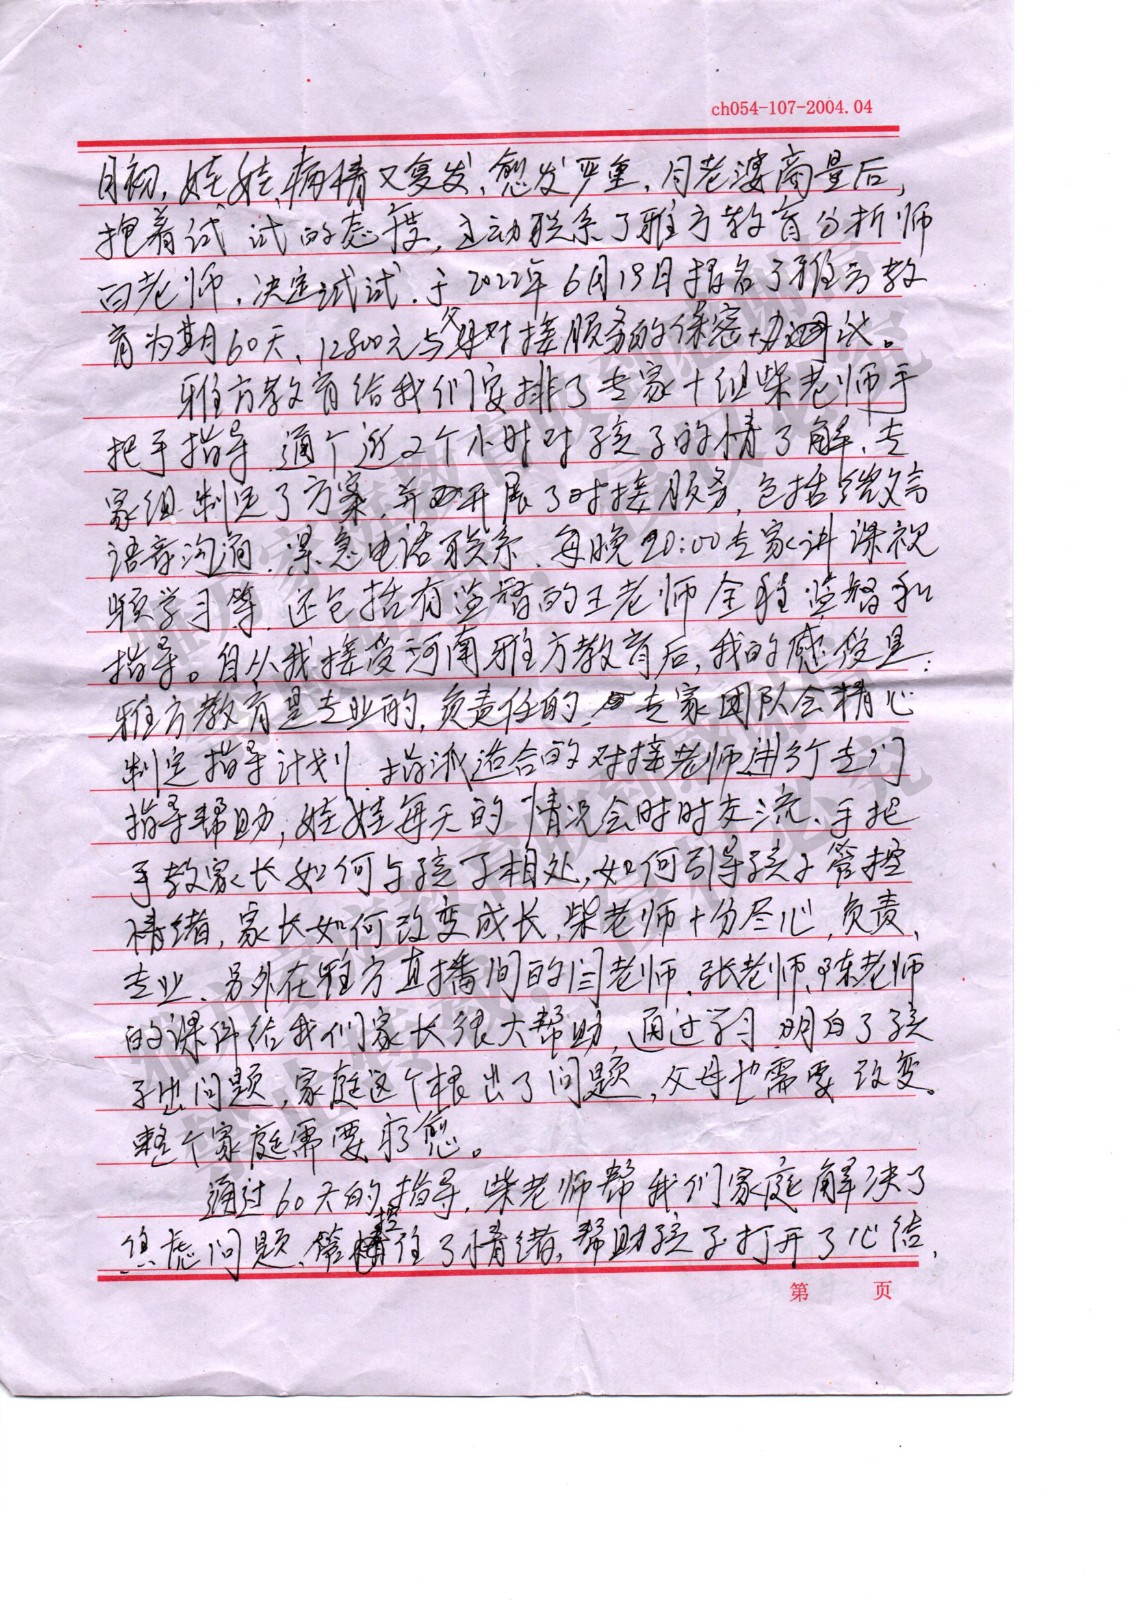 ch054-107-2004.04
月初,娃娃病情又复发、愈发严重,同老婆商量后,
抱着试试的态度,主动联系了雅方教育分析师
白老师,决定试试,于2022年6月19日报名了雅方教
育为期60天、12800元与父母对接服务的保密协议。
雅方教育给我们安排了专家十组柴老师手
把手指导,通个近2个小时对孩子的情了解,专
家组制定了方案,并开展了对接服务,包括微信
语音沟通、紧急电话联系、每晚20:00专家讲课视
频学习等,还包括有监督的王老师全程监督和
指导。自从我接受河南雅方教育后,我的感受是:
雅方教育是专业的,负责任的,专家团队会精心
制定指导计划,指派适合的对接老师进行专门
指导帮助,娃娃每天的情况会时时交流、手把
手教家长如何与孩子相处,如何引导孩子管控
情绪,家长如何改变成长,柴老师十份尽心,负责、
专业、另外在雅方直播间的闫老师、张老师、陈老师
的课件给我们家长很大帮助,通过学习,明白了孩
子出问题,家庭这个根出了问题,父母也需要改变。
整个家庭需要疗愈。
通过60天的指导,柴老师帮我们家庭解决了
焦虑问题、管控住了情绪,帮助孩子打开了心结,
第 页